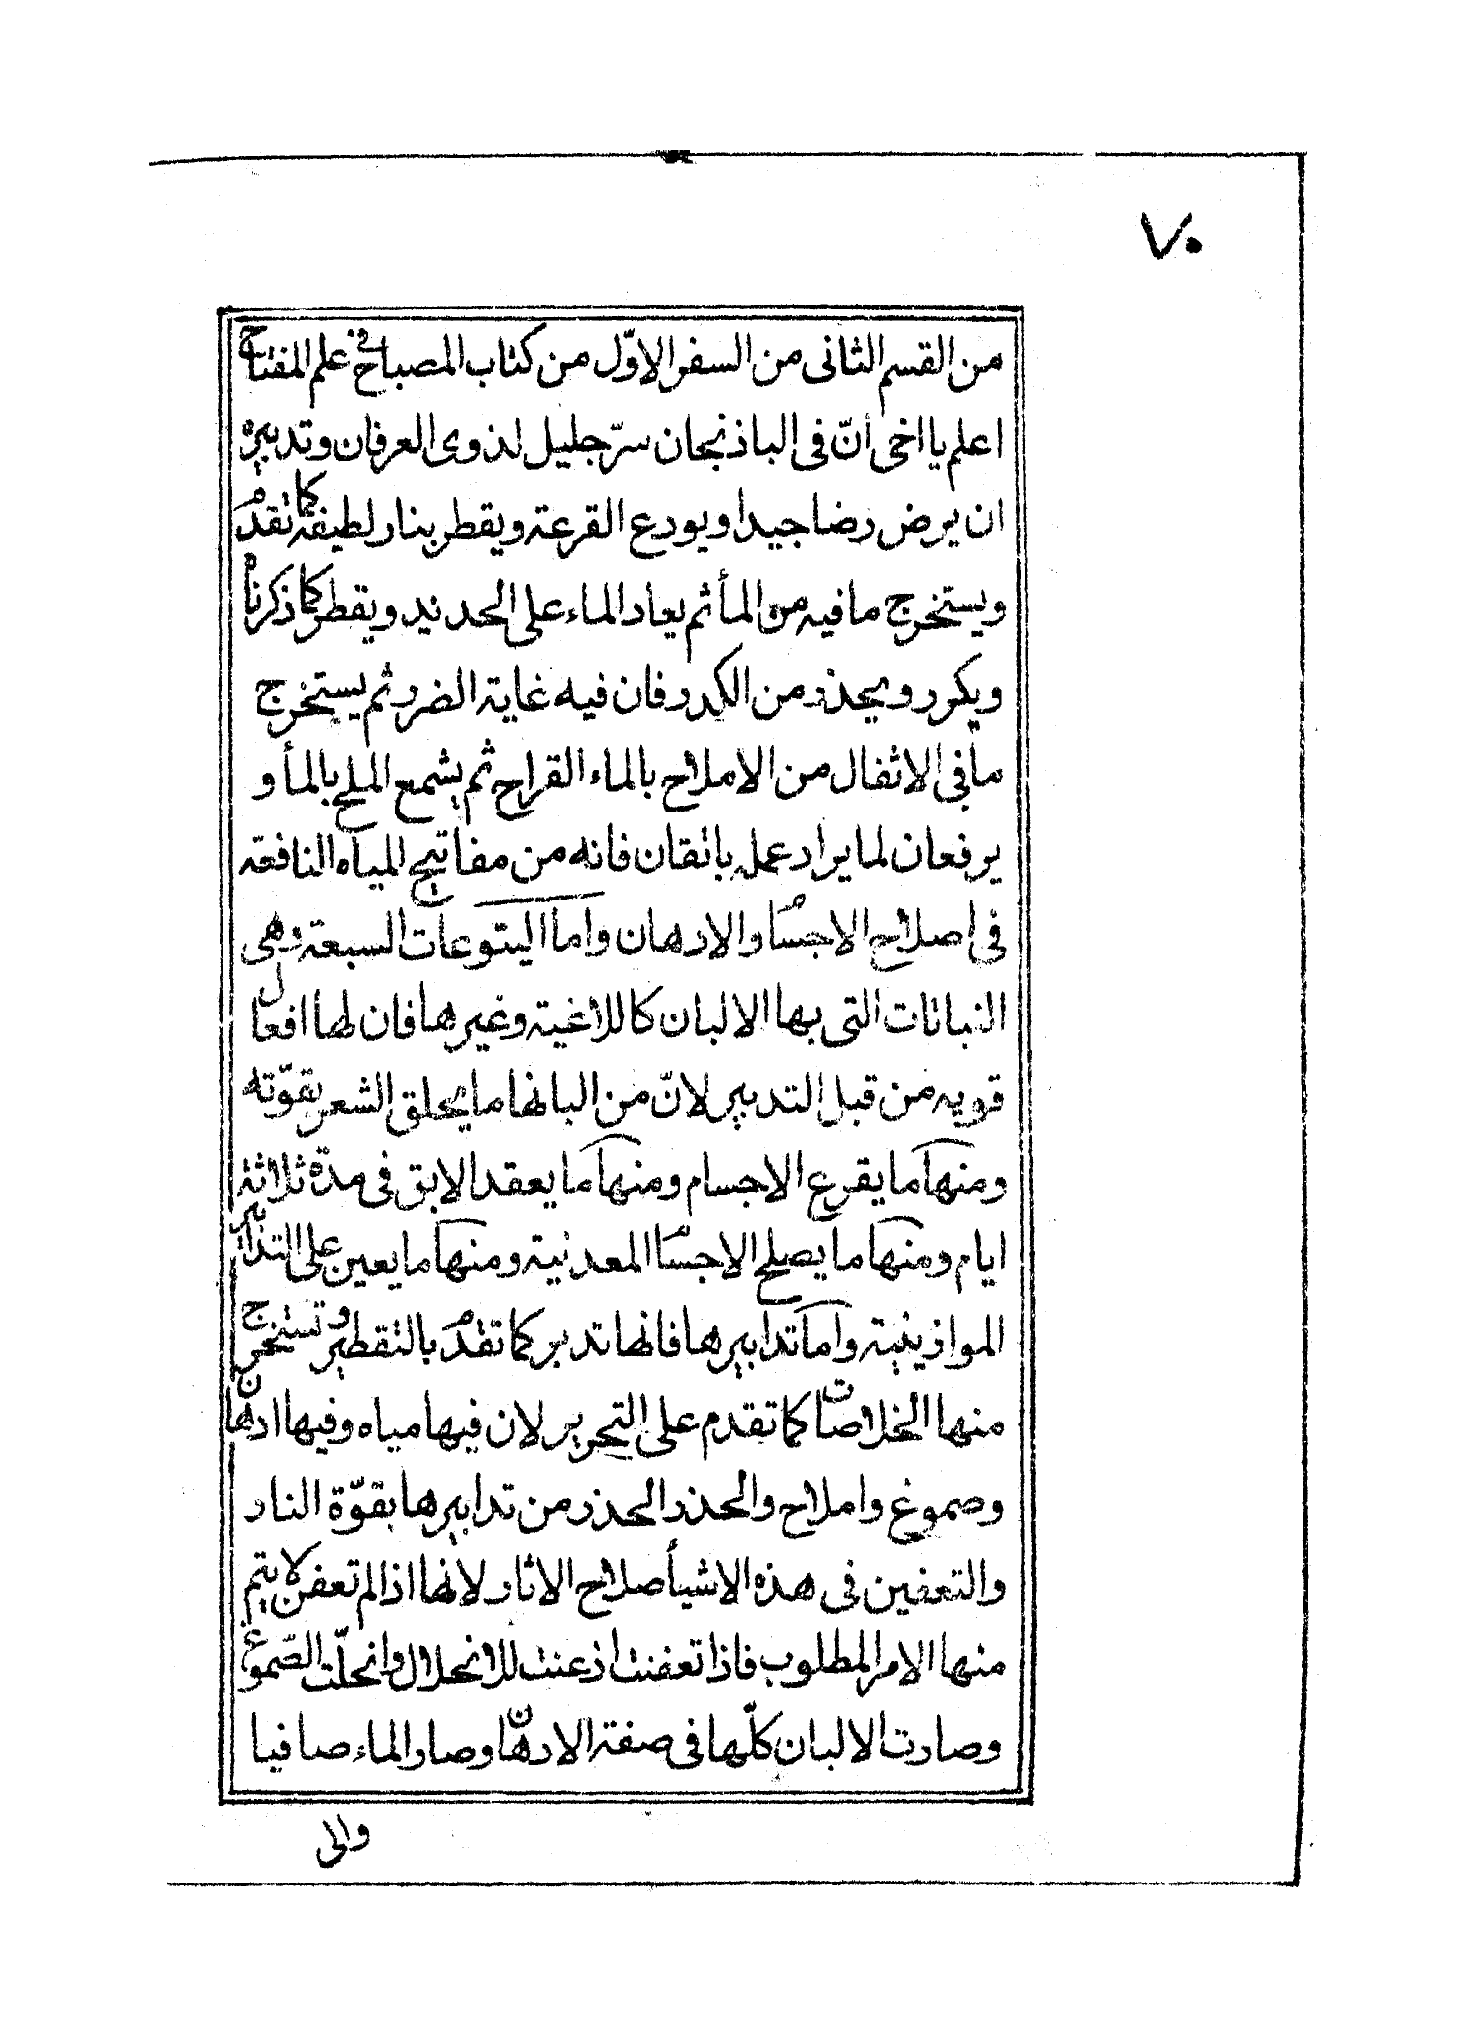 ٧٠
من القسم الثانى من السفر الاوّل من كتاب المصباح فى علم المفتاح
اعلم يا اخى أنّ فى الباذنجان سرّ جليل لذوى العرفان وتدبيره
ان يرض رضا جيدا ويودع القرعة ويقطر بنار لطيفة كما تقدم
ويستخرج ما فيه من المأ ثم يعاد الماء على الحديد ويقطر كما ذكرناه
ويكرر ويحذر من الكدر فان فيه غاية الضرر ثم يستخرج
ما فى الاثفال من الاملاح بالماء القراح ثم يشمع الملح بالمأ و
يرفعان لما يراد عمله باتقان فانه من مفاتيح المياه النافعة
فى اصلاح الاجساد والادهان واما اليتوعات السبعة وهى
النباتات التى بها الالبان كاللاغية وغيرها فان لها افعال
قويه من قبل التدبير لانّ من البانها ما يحلق الشعر بقوّته
ومنها ما يقرع الاجسام ومنها ما يعقد الابق فى مدّة ثلاثة
ايام ومنها ما يصلح الاجسام المعدنية ومنها ما يعين على التدابير
الموازينية واما تدابيرها فانها تدبر كما تقدم بالتقطير وتستخرج
منها الخلاصات كما تقدم على التحرير لان فيها مياه وفيها ادهان
وصموغ واملاح والحذر الحذر من تدابيرها بقوّة النار
والتعفين فى هذه الاشيأ صلاح الاثار لانها اذا لم تعفن لا يتم
منها الامر المطلوب فاذا تعفنت اذعنت للانحلال وانحلّت الصّموغ
وصارت الالبان كلّها فى صفة الادهان وصار الماء صافيا
والى